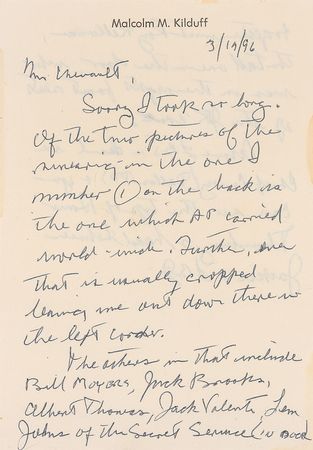 Malcolm M. Kilduff
3/19/96
Mr.
Sorry I took so long.
Of the two pictures of the
swearing-in the one I
number ① on the back is
the one which AP carried
world-wide. Further, even
that is usually cropped
leaving me out down there in
the left corner.
The others in that include
Bill Moyers, Jack Brooks,
Albert Thomas, Jack Valenti, Lem
Johns of the Secret Service (in back